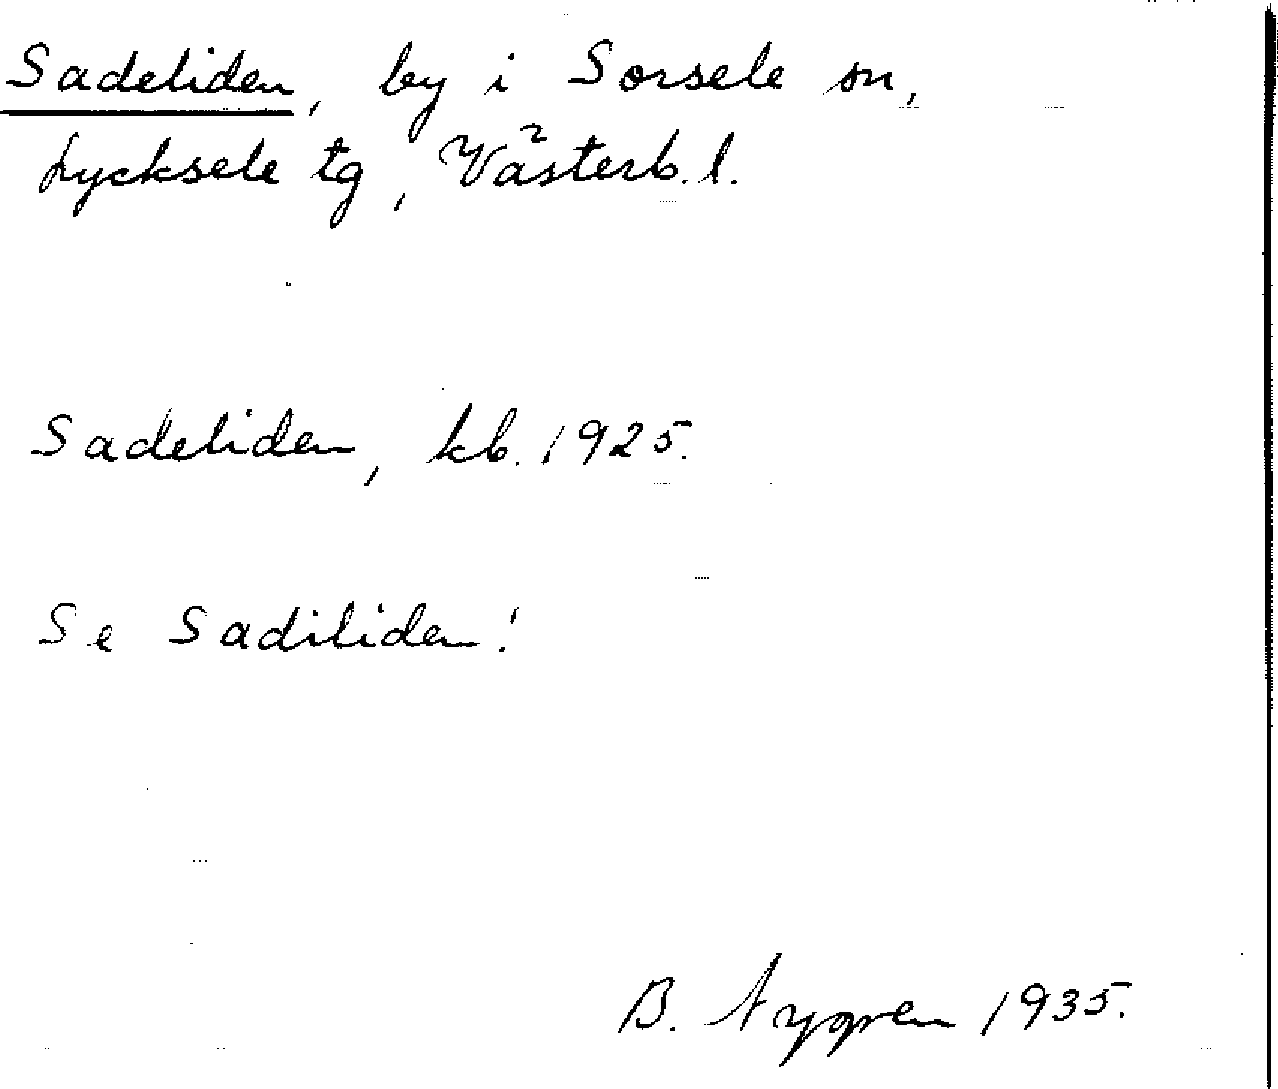 Sadeliden, by i Sorsele sn,
Lycksele tg, Västerb. l.
Sadeliden, kb. 1925.
Se Sadiliden!
B. Nygren 1935.